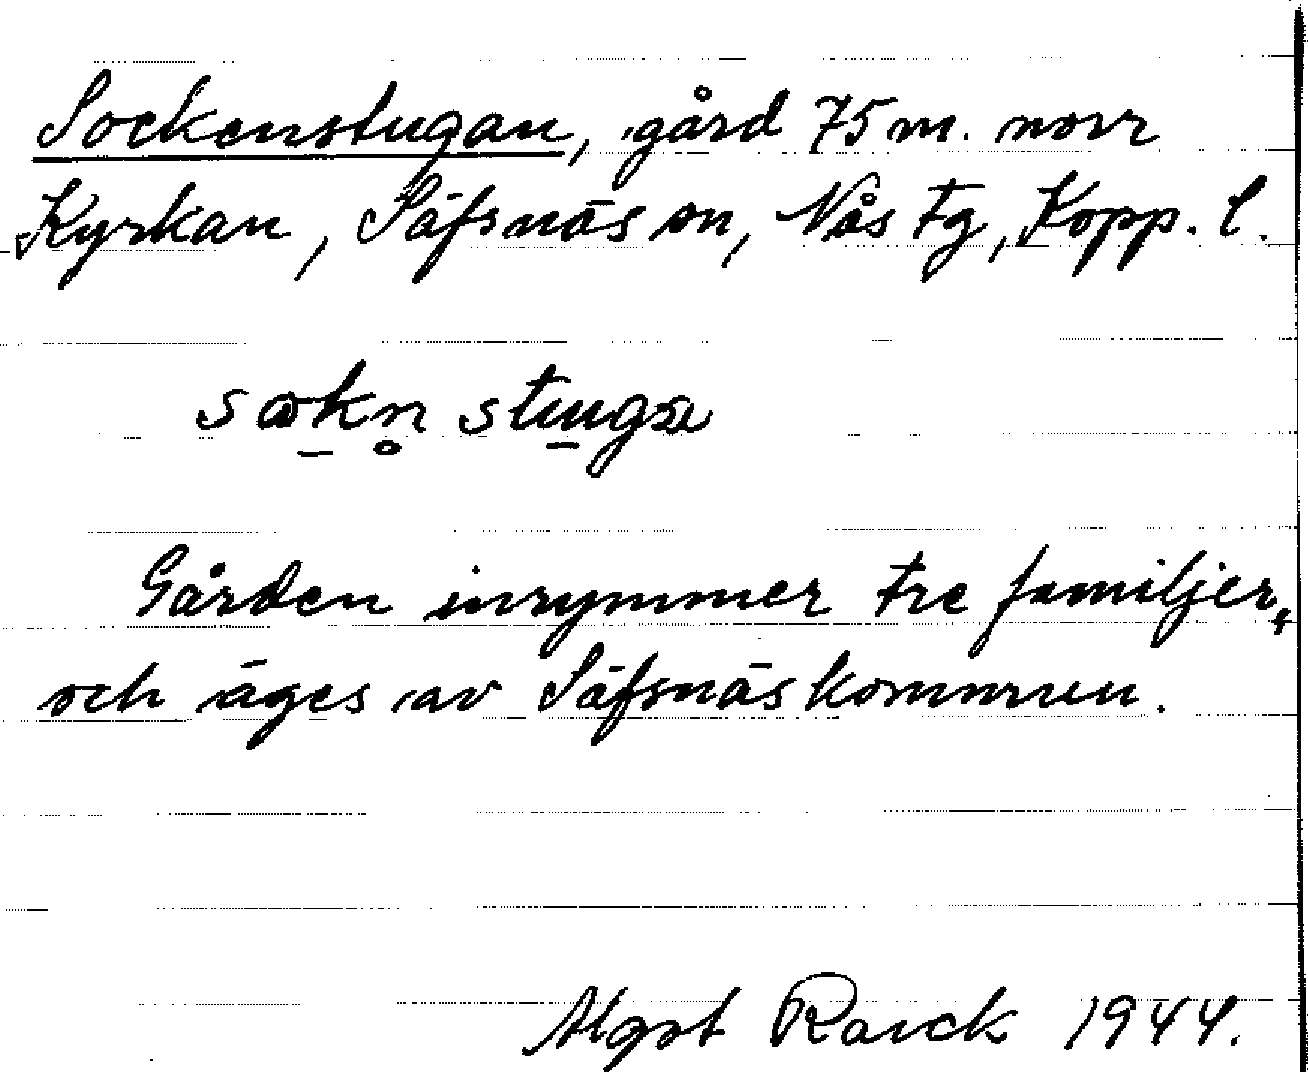 Sockenstugan, gård 75 m. norr
Kyrkan, Säfsnäs sn, Nås tg, Kopp. l.
Gården inrymmer tre familjer,
och äges av Säfsnäs kommun.
1944.